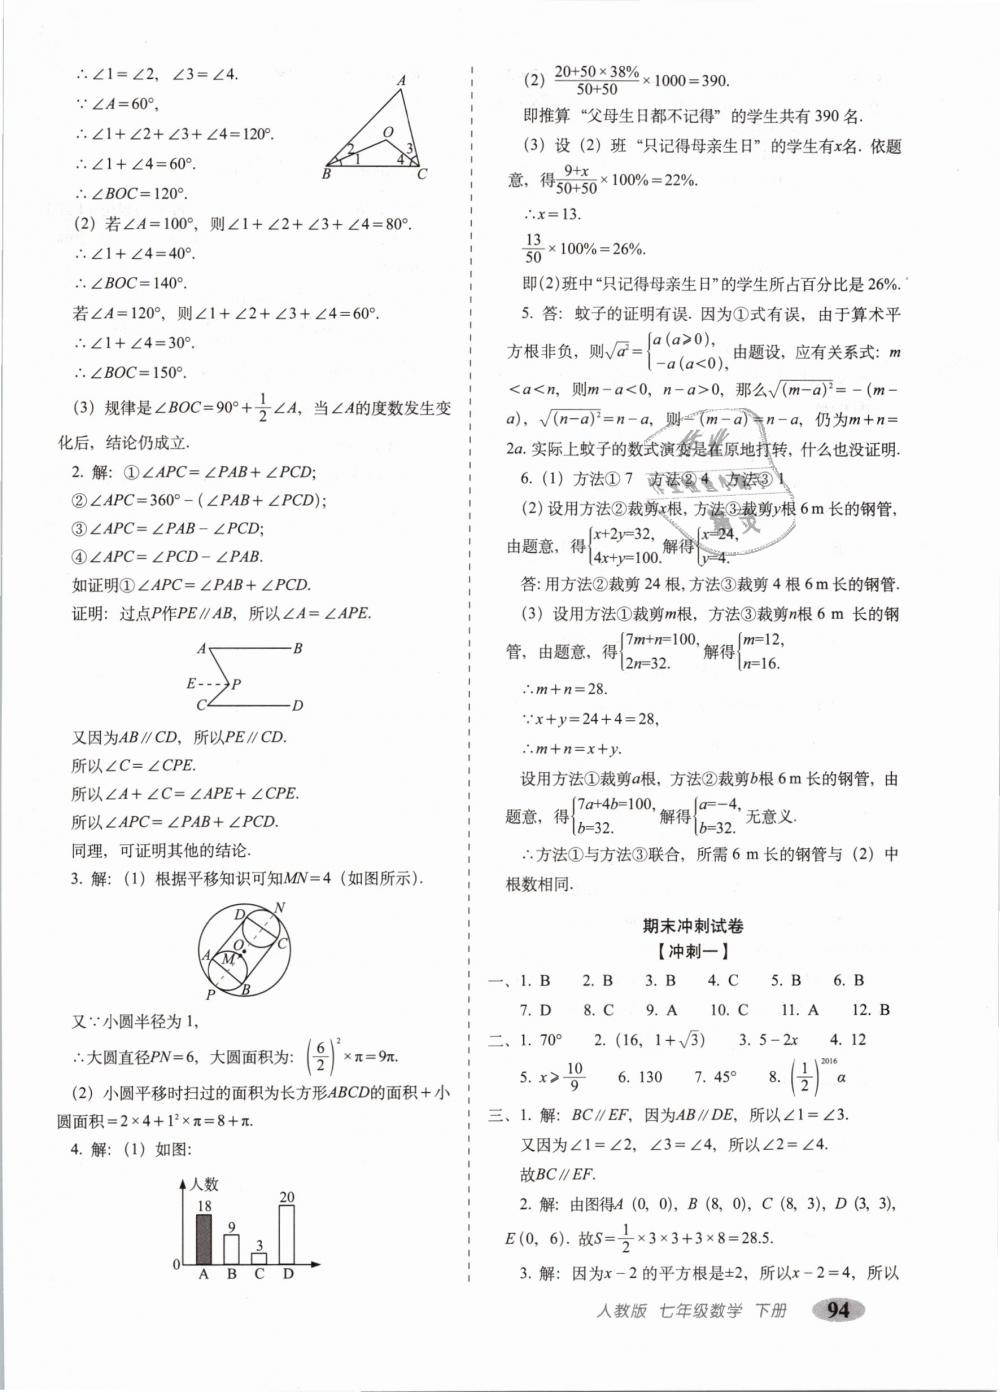 ∴∠1=∠2，∠3=∠4.
∵∠A=60°，
∴∠1+∠2+∠3+∠4=120°.
∴∠1+∠4=60°.
∴∠BOC=120°.
A
O
2 3
1 4
B C
(2) 若∠A=100°，则∠1+∠2+∠3+∠4=80°.
∴∠1+∠4=40°.
∴∠BOC=140°.
若∠A=120°，则∠1+∠2+∠3+∠4=60°.
∴∠1+∠4=30°.
∴∠BOC=150°.
(3) 规律是∠BOC=90°+1/2∠A，当∠A的度数发生变
化后，结论仍成立.
2. 解：①∠APC=∠PAB+∠PCD；
②∠APC=360°-(∠PAB+∠PCD)；
③∠APC=∠PAB-∠PCD；
④∠APC=∠PCD-∠PAB.
如证明①∠APC=∠PAB+∠PCD.
证明：过点P作PE∥AB，所以∠A=∠APE.
A B
E P
C D
又因为AB∥CD，所以PE∥CD.
所以∠C=∠CPE.
所以∠A+∠C=∠APE+∠CPE.
所以∠APC=∠PAB+∠PCD.
同理，可证明其他的结论.
3. 解：(1) 根据平移知识可知MN=4（如图所示）.
D N
O C
A M
P B
又∵小圆半径为1，
∴大圆直径PN=6，大圆面积为：(6/2)²×π=9π.
(2) 小圆平移时扫过的面积为长方形ABCD的面积+小
圆面积=2×4+1²×π=8+π.
4. 解：(1) 如图：
人数
18 9 3 20
0
A B C D
(2) (20+50×38%)/(50+50)×1000=390.
即推算“父母生日都不记得”的学生共有390名.
(3) 设（2）班“只记得母亲生日”的学生有x名. 依题
意，得(9+x)/(50+50)×100%=22%.
∴x=13.
13/50×100%=26%.
即(2)班中“只记得母亲生日”的学生所占百分比是26%.
5. 答：蚊子的证明有误. 因为①式有误，由于算术平
方根非负，则√a²={a(a⩾0)，-a(a<0)，由题设，应有关系式：m
<a<n，则m-a<0，n-a>0，那么√(m-a)²=-(m-
a)，√(n-a)²=n-a，则-(m-a)=n-a，仍为m+n=
2a. 实际上蚊子的数式演变是在原地打转，什么也没证明.
6. (1) 方法①7 方法②4 方法③1
(2) 设用方法②裁剪x根，方法③裁剪y根6m长的钢管，
由题意，得{x+2y=32，4x+y=100. 解得{x=24，y=4.
答：用方法②裁剪24根，方法③裁剪4根6m长的钢管.
(3) 设用方法①裁剪m根，方法③裁剪n根6m长的钢
管，由题意，得{7m+n=100，2n=32. 解得{m=12，n=16.
∴m+n=28.
∵x+y=24+4=28，
∴m+n=x+y.
设用方法①裁剪a根，方法②裁剪b根6m长的钢管，由
题意，得{7a+4b=100，b=32. 解得{a=-4，b=32. 无意义.
∴方法①与方法③联合，所需6m长的钢管与（2）中
根数相同.
期末冲刺试卷
【冲刺一】
一、1. B 2. B 3. B 4. C 5. B 6. B
7. D 8. C 9. A 10. C 11. A 12. B
二、1. 70° 2. (16，1+√3) 3. 5-2x 4. 12
5. x⩾10/9 6. 130 7. 45° 8. (1/2)²⁰¹⁶α
三、1. 解：BC∥EF，因为AB∥DE，所以∠1=∠3.
又因为∠1=∠2，∠3=∠4，所以∠2=∠4.
故BC∥EF.
2. 解：由图得A(0，0)，B(8，0)，C(8，3)，D(3，3)，
E(0，6). 故S=1/2×3×3+3×8=28.5.
3. 解：因为x-2的平方根是±2，所以x-2=4，所以
人教版 七年级数学 下册 94